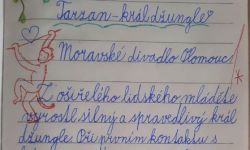 Tarzan - král džungle♡
Moravské divadlo Olomouc
Z osiřelého lidského mláděte
vyrostl silný a spravedlivý král
džungle. Při prvním kontaktu s